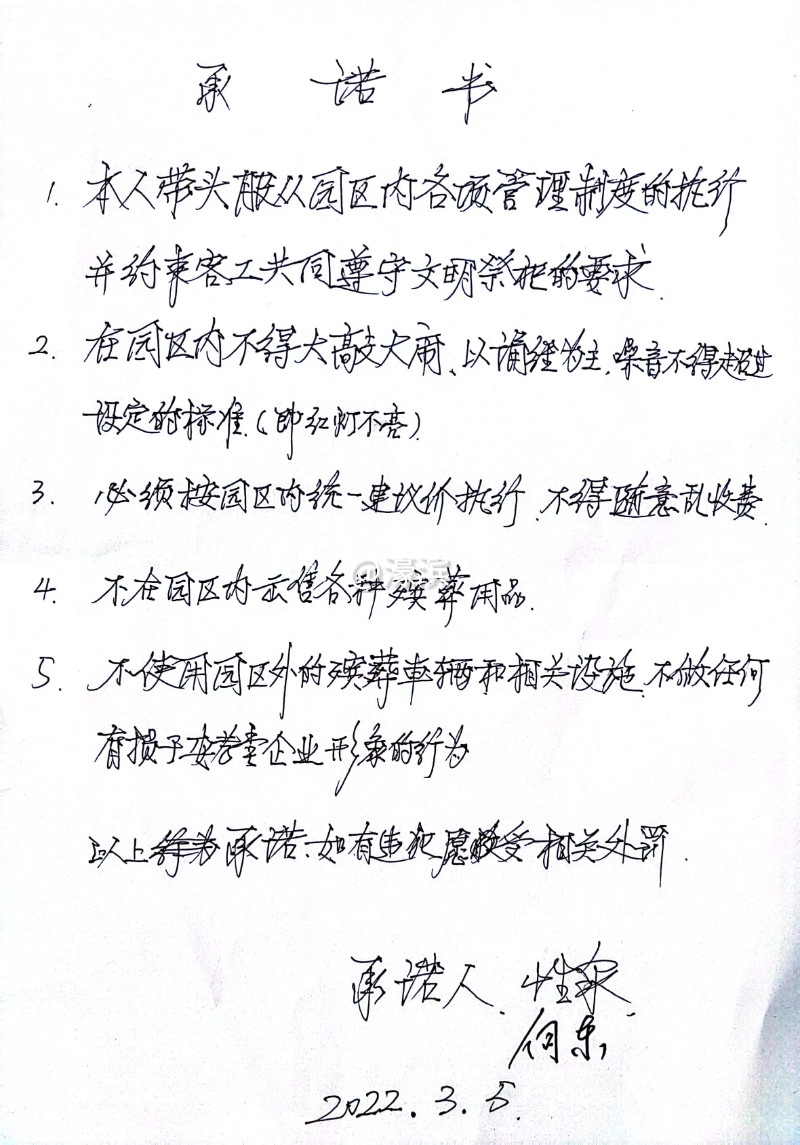 承诺书
1. 本人带头服从园区内各项管理制度的执行
并约束客工共同遵守文明祭祀的要求.
2. 在园区内不得大敲大闹、以诵经为主,噪音不得超过
设定的标准.(即红灯不亮)
3. 必须按园区内统一建议价执行.不得随意乱收费.
4. 不在园区内出售各种殡葬用品.
@濠滨
5. 不使用园区外的殡葬車辆和相关设施.不做任何
有损于安孝堂企业形象的行为
以上承诺:如有违犯愿接受相关处罚.
承诺人.性泉.
何东
2022.3.5.